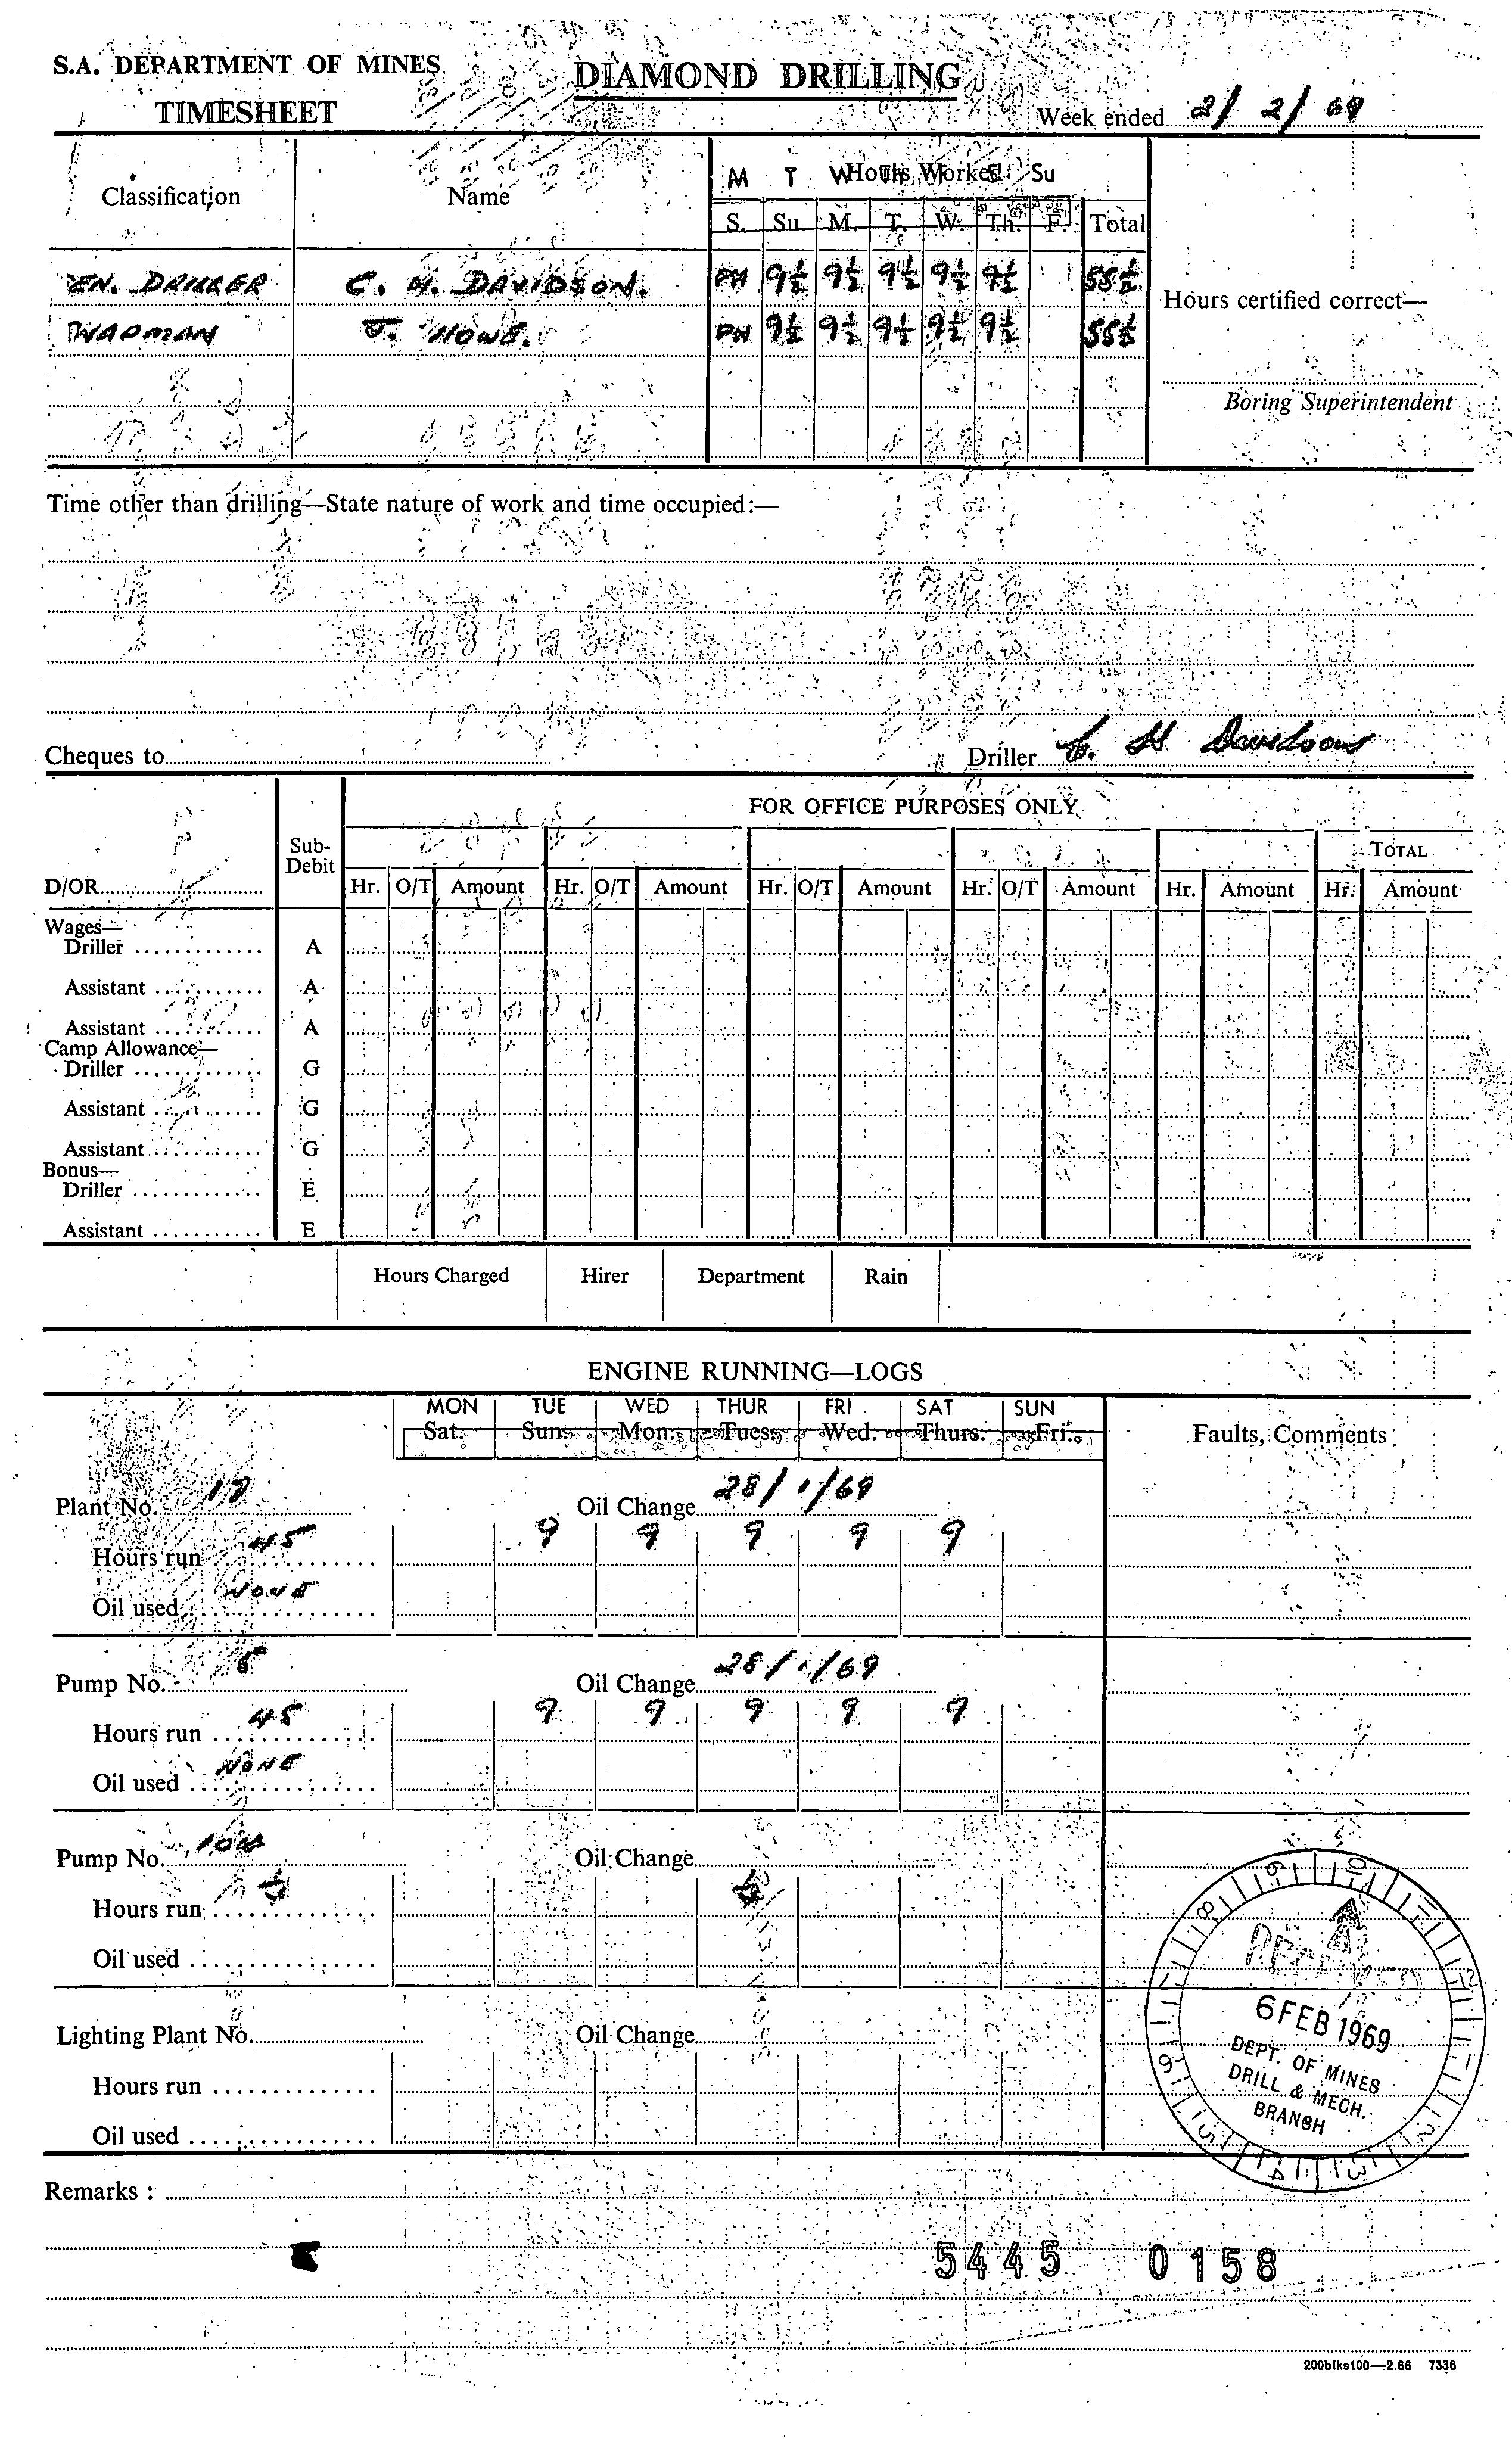 S.A. DEPARTMENT OF MINES
DIAMOND DRILLING
TIMESHEET
Week ended 2/2/69
Classification Name Hours Worked Total
M T W Th F S Su
S. Su. M. T. W. Th. F.
DRILLER C. H. DAVIDSON. PH 9½ 9½ 9½ 9½ 9½
Hours certified correct—
J. HOWE. PH 9½ 9½ 9½ 9½ 9½
Boring Superintendent
Time other than drilling—State nature of work and time occupied:—
Cheques to
Driller C. H Davidson
FOR OFFICE PURPOSES ONLY
Sub-Debit
TOTAL
D/OR
Hr. O/T Amount Hr. O/T Amount Hr. O/T Amount Hr. O/T Amount Hr. Amount Hr. Amount
Wages—
Driller A
Assistant A
Assistant A
Camp Allowance—
Driller G
Assistant G
Assistant G
Bonus—
Driller E
Assistant E
Hours Charged Hirer Department Rain
ENGINE RUNNING—LOGS
MON TUE WED THUR FRI SAT SUN
Sat. Sun. Mon. Tues. Wed. Thurs. Fri.
Faults, Comments
Plant No. Oil Change 28/1/69
Hours run 45 9 9 9 9 9
Oil used NONE
Pump No. Oil Change 28/1/69
Hours run 45 9 9 9 9 9
Oil used NONE
Pump No. Oil Change
Hours run ½ ½
Oil used
Lighting Plant No. Oil Change
Hours run
Oil used
RECEIVED
6 FEB 1969
DEPT. OF MINES
DRILL & MECH.
BRANCH
Remarks :
5445 0158
200blks100—2.66 7336